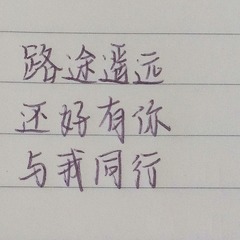 路途遥远
还好有你
与我同行